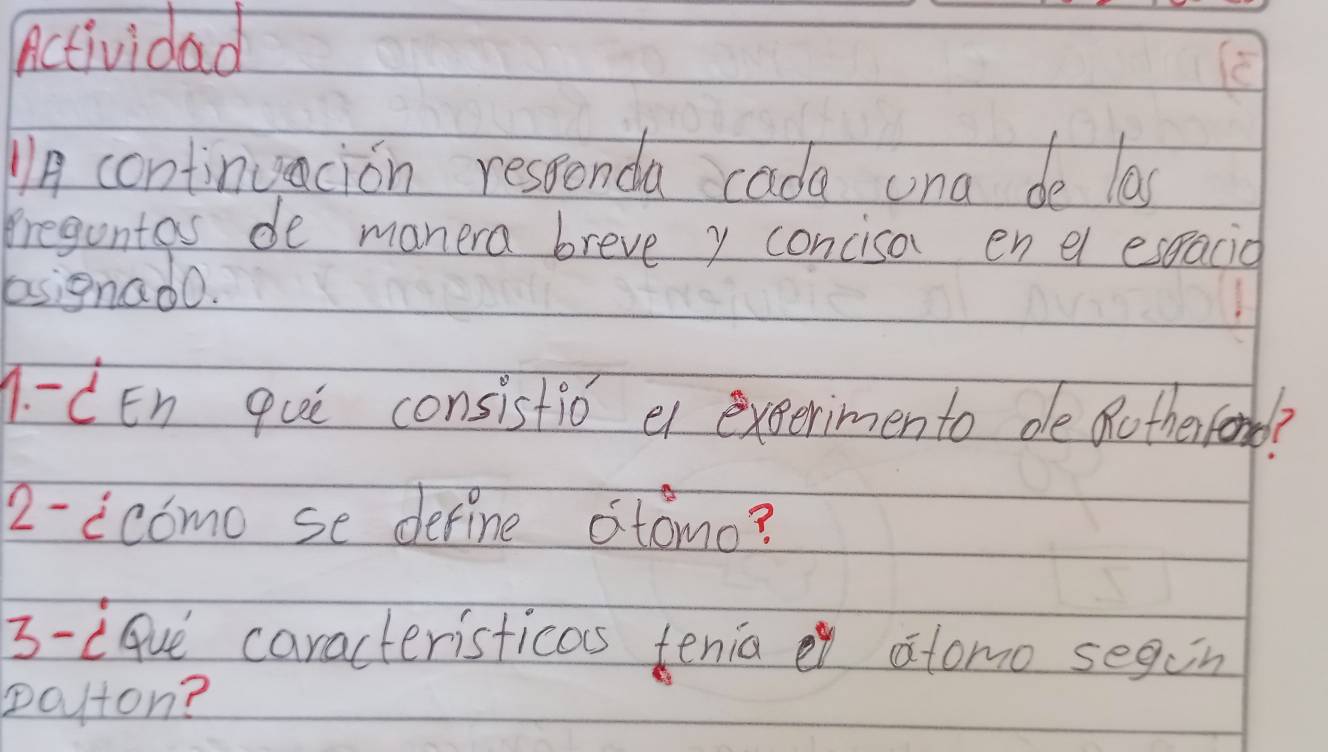 Actividad
1) A continuación responda cada una de las
preguntas de manera breve y concisa en el espacio
asignado.
1.-¿En qué consistió el experimento de Rutherford?
2-¿cómo se define átomo?
3-¿Qué características tenía el átomo según
Dalton?